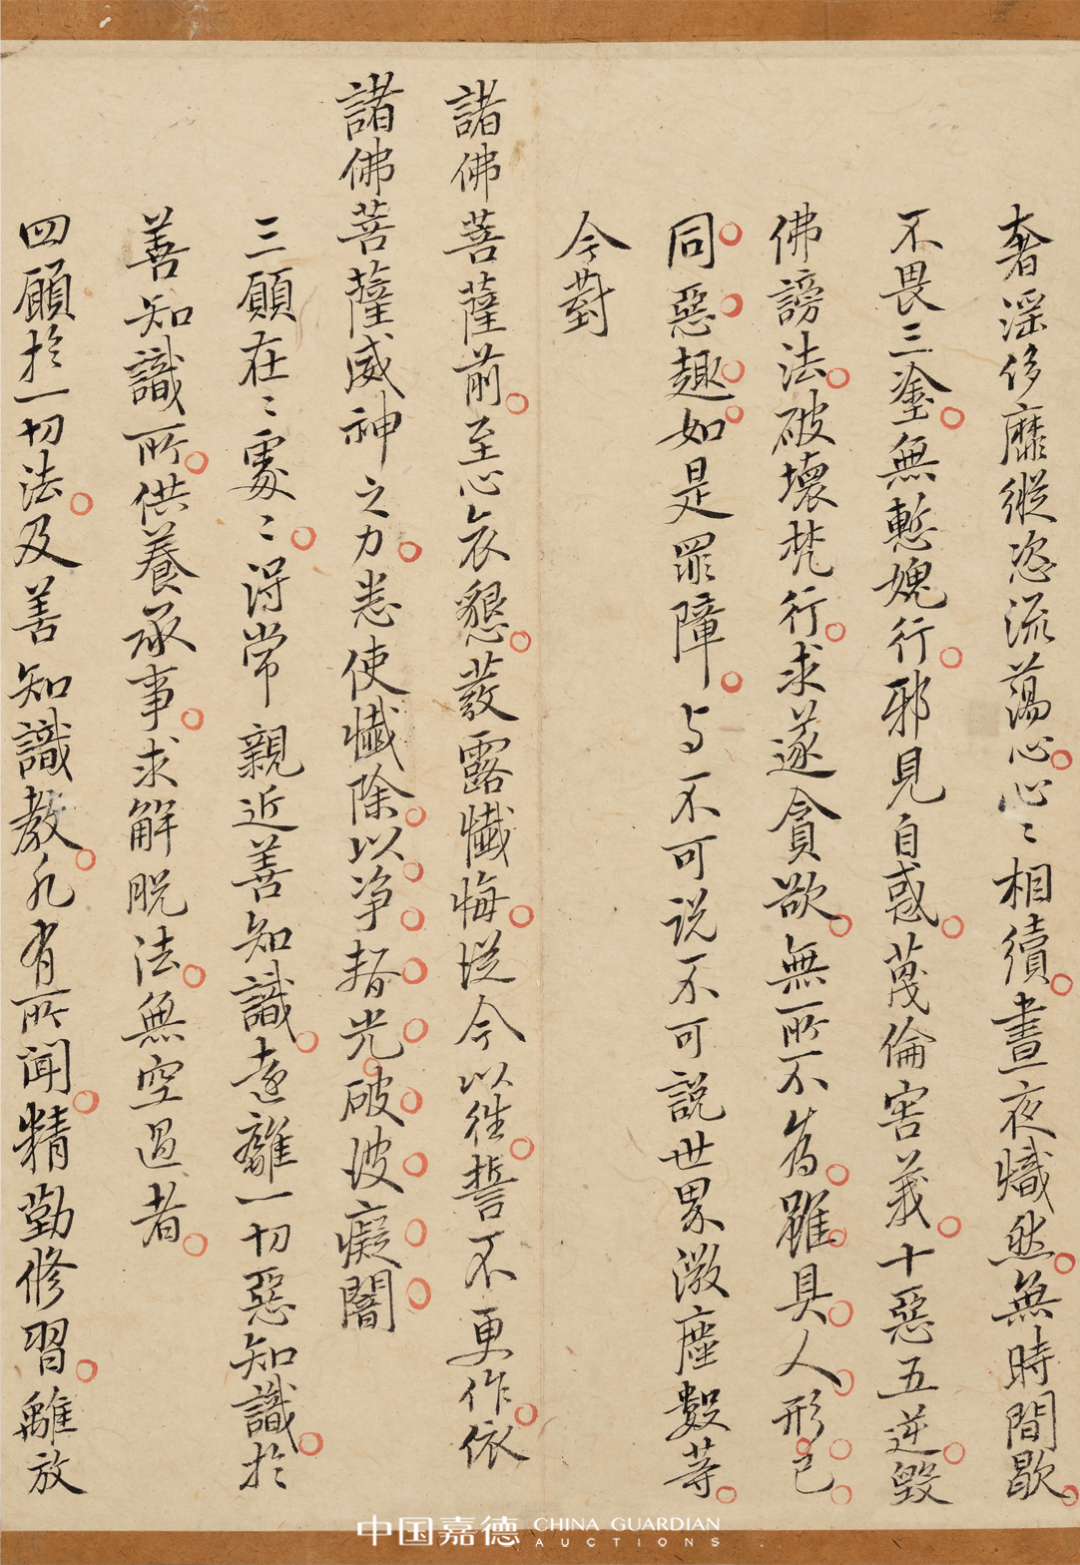 奢淫侈靡縱恣流蕩心心〻相續晝夜熾然無時間歇
不畏三塗無慙媿行邪見自惑蔑倫害義十惡五逆毀
佛謗法破壞梵行求遂貪欲無所不為雖具人形已
同惡趣如是罪障与不可说不可説世界微塵數等
今對
諸佛菩薩前至心哀懇發露懺悔從今以往誓不更作依
諸佛菩薩威神之力悉使懺除以净智光破彼癡闇
三願在〻處〻得常親近善知識遠離一切惡知識於
善知識所供養承事求解脱法無空過者
四願於一切法及善知識教凡有所聞精勤修習離放
中国嘉德 CHINA GUARDIAN AUCTIONS